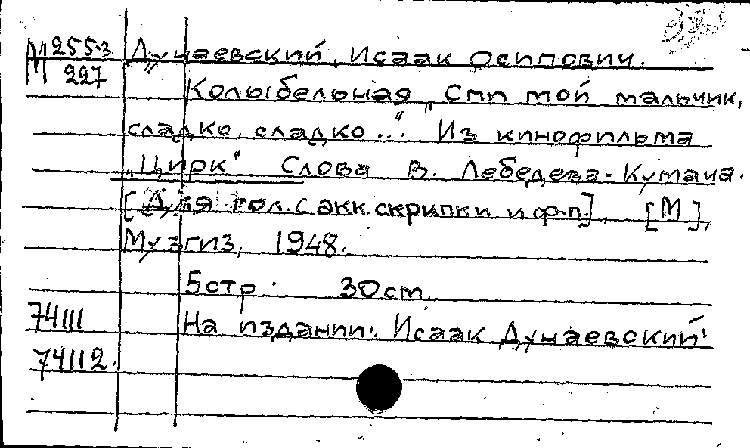 М 255-3 Дунаевский, Исаак Осипович.
227
Колыбельная „Спи мой мальчик,
сладко, сладко..." Из кинофильма
„Цирк" Слова В. Лебедева-Кумача.
[Для гол. с акк. скрипки и ф-п.] [М],
Музгиз, 1948.
5 стр. 30 см.
74111 На издании: Исаак Дунаевский.
74112.